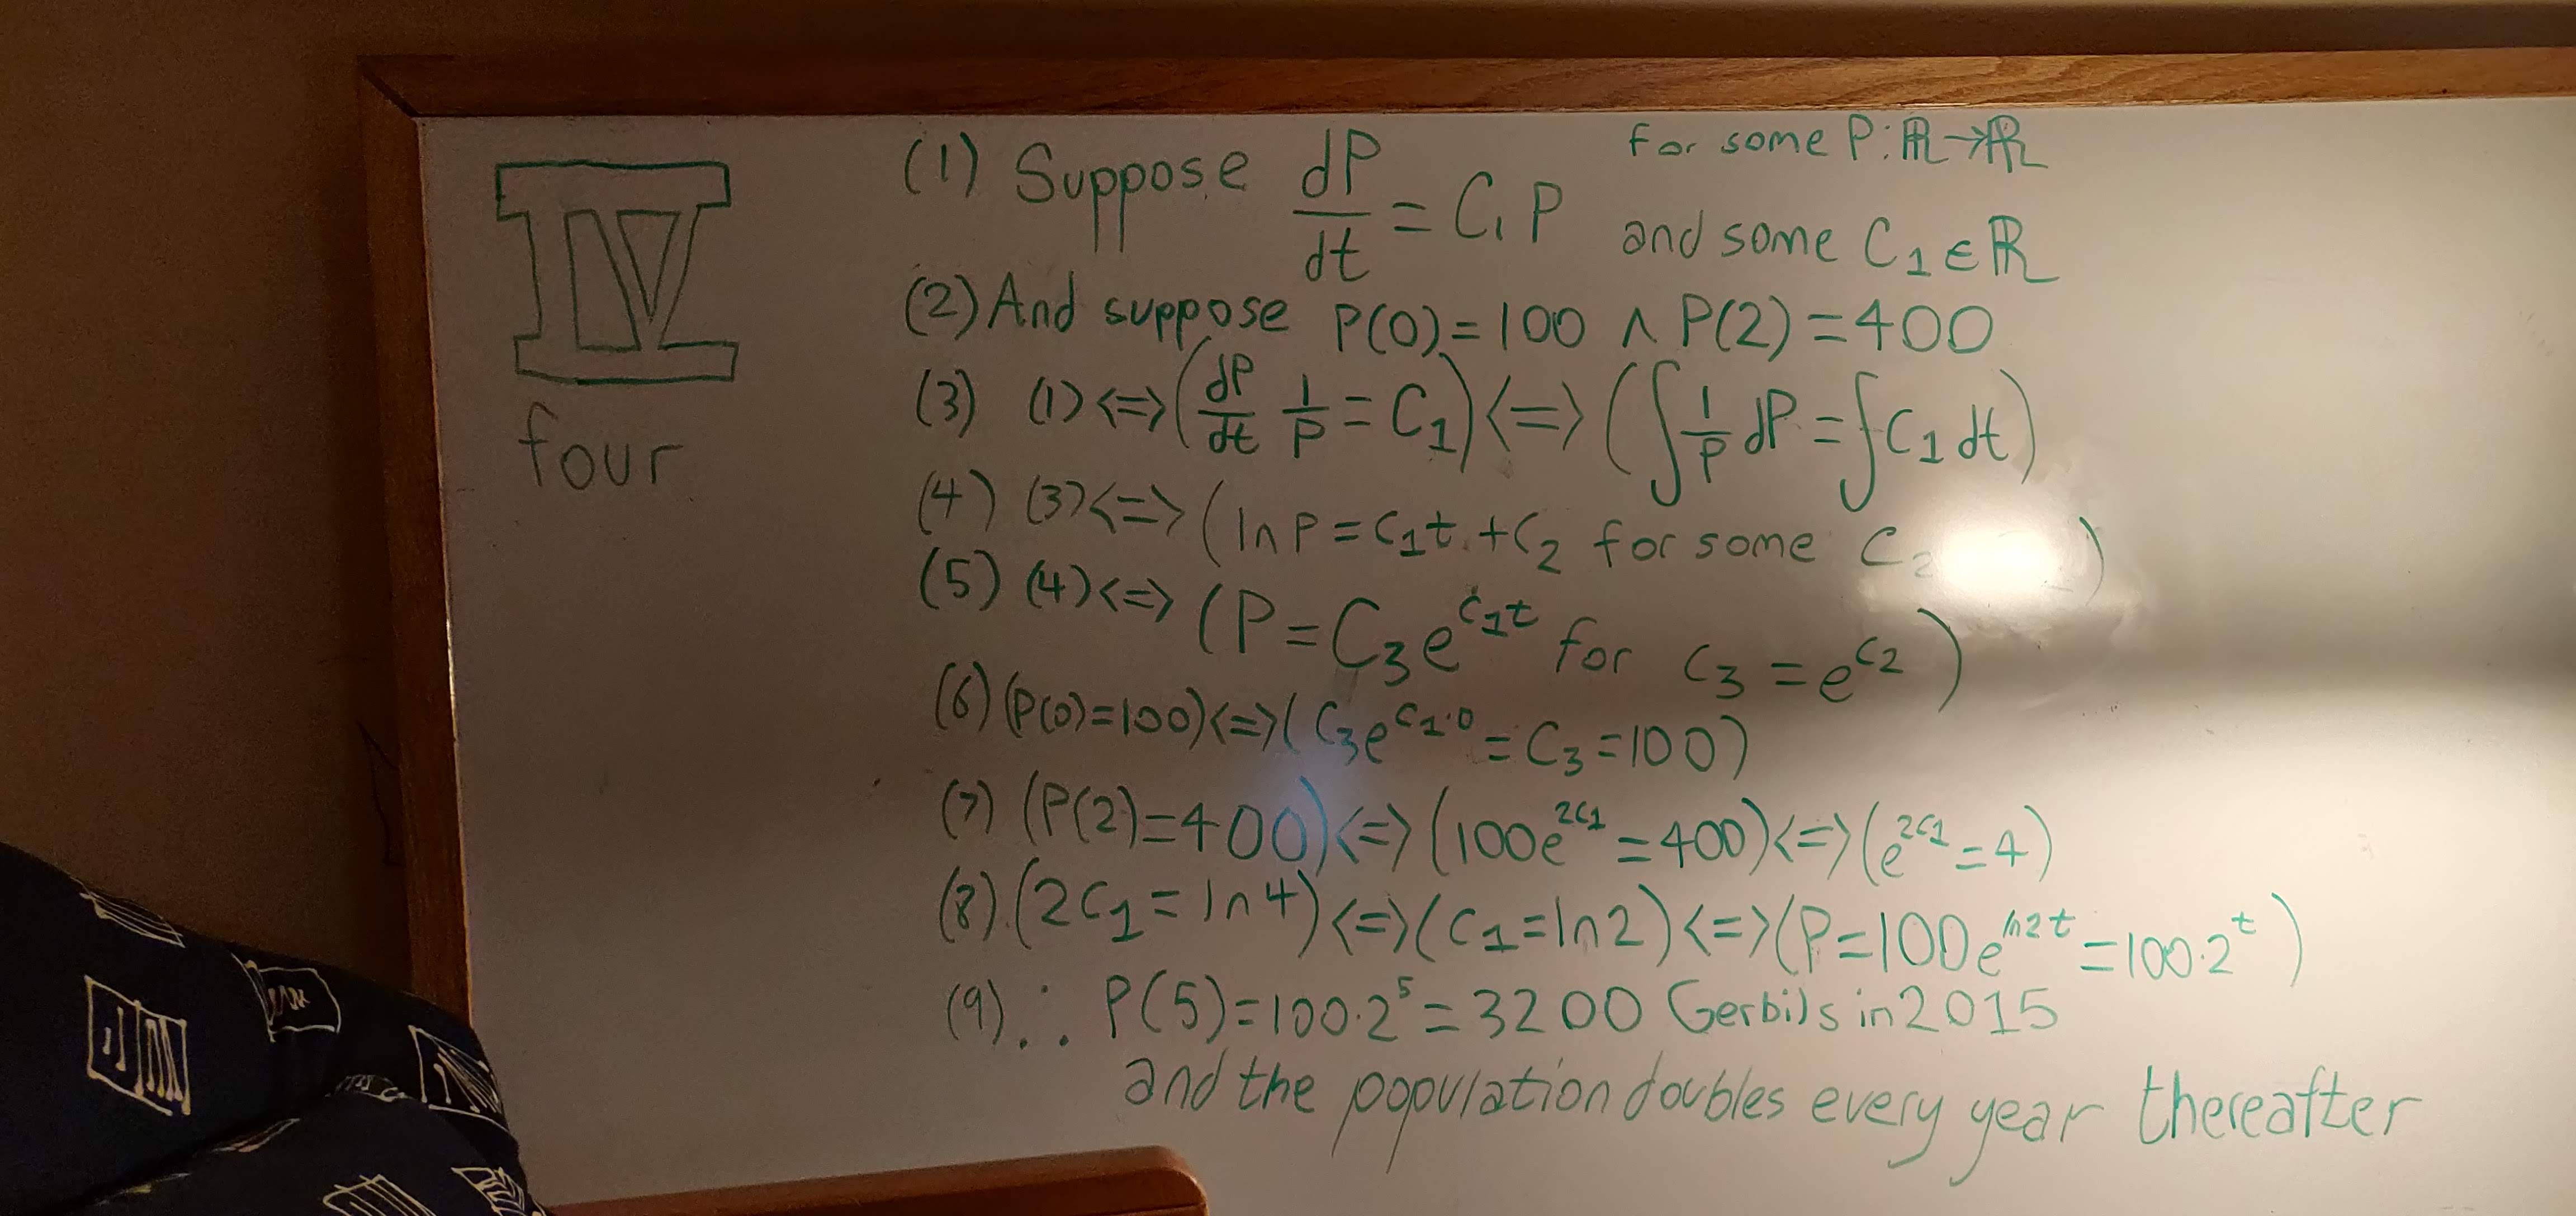 IV
four
(1) Suppose dP/dt = C₁P for some P: ℝ→ℝ
and some C₁ ∈ ℝ
(2) And suppose P(0)=100 ∧ P(2)=400
(3) (1) <=> (dP/dt 1/P = C₁) <=> (∫ 1/P dP = ∫ C₁ dt)
(4) (3) <=> (ln P = C₁t + C₂ for some C₂ )
(5) (4) <=> (P = C₃e^(C₁t) for C₃ = e^(C₂))
(6) (P(0)=100) <=> (C₃e^(C₁·0) = C₃ = 100)
(7) (P(2)=400) <=> (100e^(2C₁) = 400) <=> (e^(2C₁) = 4)
(8) (2C₁ = ln 4) <=> (C₁ = ln 2) <=> (P = 100e^(ln2 t) = 100·2^t)
(9) ∴ P(5) = 100·2⁵ = 3200 Gerbils in 2015
and the population doubles every year thereafter